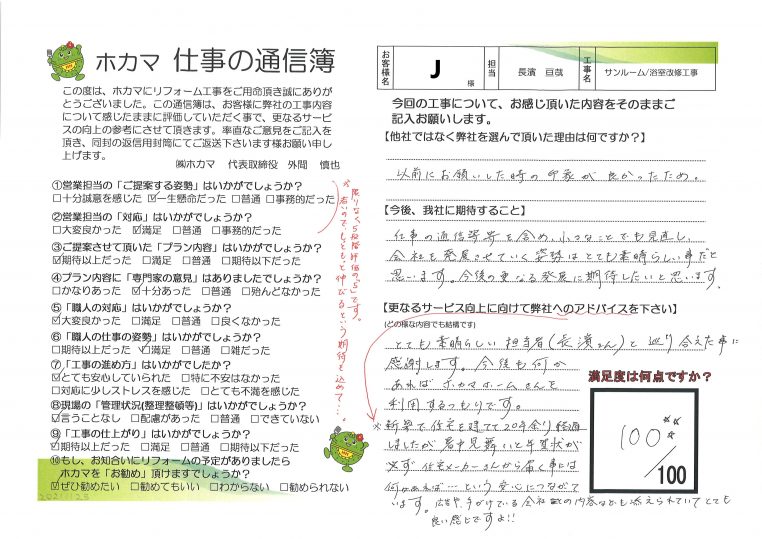 ホカマ 仕事の通信簿
この度は、ホカマにリフォーム工事をご用命頂き誠にありが
とうございました。この通信簿は、お客様に弊社の工事内容
について感じたままに評価していただく事で、更なるサービ
スの向上の参考にさせて頂きます。率直なご意見をご記入を
頂き、同封の返信用封筒にてご返送下さいます様お願い申し
上げます。
㈱ホカマ 代表取締役 外間 慎也
①営業担当の「ご提案する姿勢」はいかがでしょうか?
□十分誠意を感じた ☑一生懸命だった □普通 □事務的だった
②営業担当の「対応」はいかがでしょうか?
□大変良かった ☑満足 □普通 □事務的だった
③ご提案させて頂いた「プラン内容」はいかがでしょうか?
☑期待以上だった □満足 □普通 □期待以下だった
④プラン内容に「専門家の意見」はありましたでしょうか?
□かなりあった ☑十分あった □普通 □殆んどなかった
⑤「職人の対応」はいかがでしょうか?
☑大変良かった □満足 □普通 □良くなかった
⑥「職人の仕事の姿勢」はいかがでしょうか?
□期待以上だった ☑満足 □普通 □雑だった
⑦「工事の進め方」はいかがでしたか?
☑とても安心していられた □特に不安はなかった
□対応に少しストレスを感じた □とても不満を感じた
⑧現場の「管理状況(整理整頓等)」はいかがでしょうか?
☑言うことなし □配慮があった □普通 □できていない
⑨「工事の仕上がり」はいかがでしょうか?
☑期待以上だった □満足 □普通 □期待以下だった
⑩もし、お知合いにリフォームの予定がありましたら
ホカマを「お勧め」頂けますでしょうか?
☑ぜひ勧めたい □勧めてもいい □わからない □勧められない
2021.11.25
※限りなく5段階評価の"5"です。
高いので、もっともっと伸びるという期待も込めて…。
お客様名 J 様 担当 長濱 亘哉 工事名 サンルーム/浴室改修工事
今回の工事について、お感じ頂いた内容をそのままご
記入お願いします。
【他社ではなく弊社を選んで頂いた理由は何ですか?】
以前にお願いした時の印象が良かったため。
【今後、我社に期待すること】
仕事の通信簿等を含め、小さなことでも見直し、
会社を発展させていく姿勢はとても素晴らしい事だと
思います。今後の更なる発展に期待したいと思います。
【更なるサービス向上に向けて弊社へのアドバイスを下さい】
(どの様な内容でも結構です)
とても素晴らしい担当者(長濱さん)と巡り合えた事に
感謝します。今後も何か
あればホカマホームさんを
利用するつもりです。
※新築で住宅を建てて20年余り経過
しましたが暑中見舞いと年賀状が
必ず住宅メーカーさんから届く事は
何かあれば…という安心につながって
います。広告や、手がけている会社の内容なども添えられていてとても
良い感じですよ!!
満足度は何点ですか?
100
/100